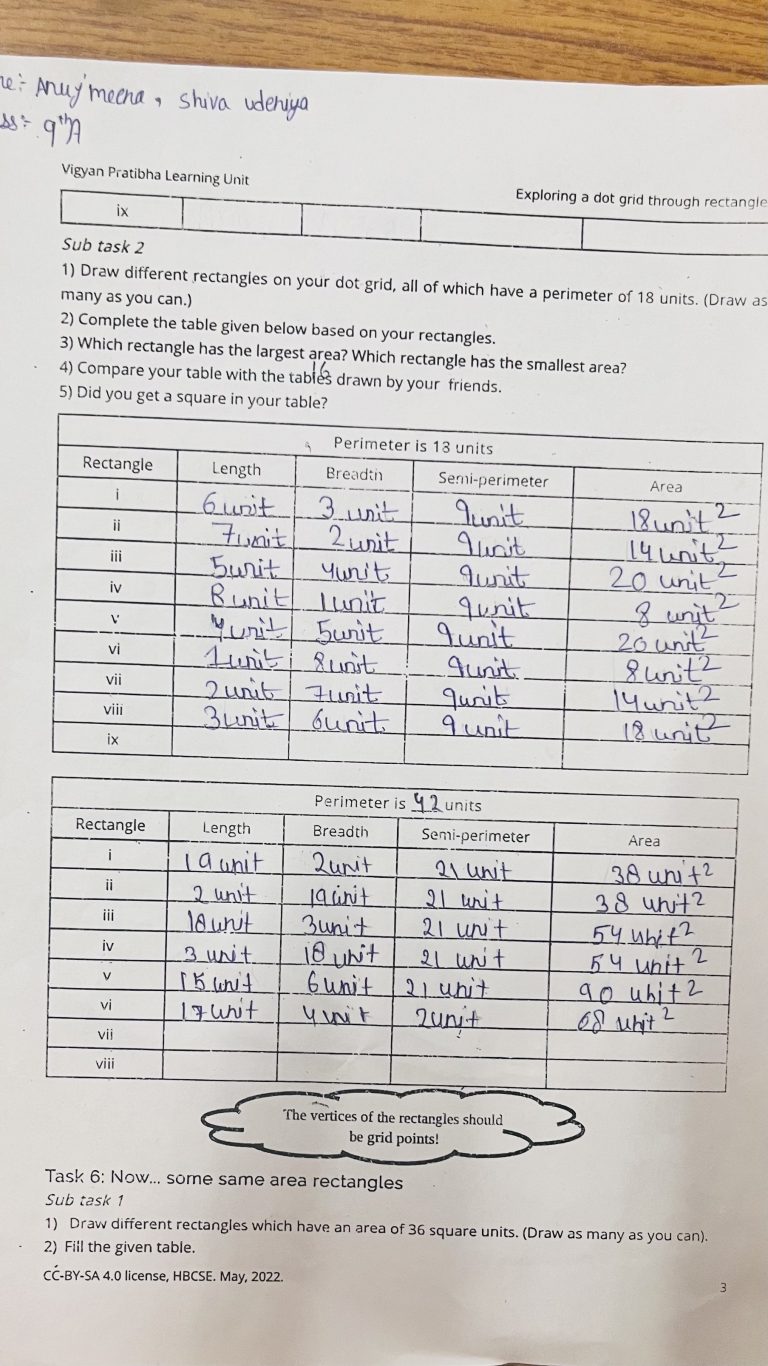 Anuj meena, shiva udeniya
9th A
Vigyan Pratibha Learning Unit
Exploring a dot grid through rectangle
ix
Sub task 2
1) Draw different rectangles on your dot grid, all of which have a perimeter of 18 units. (Draw as
many as you can.)
2) Complete the table given below based on your rectangles.
3) Which rectangle has the largest area? Which rectangle has the smallest area?
16
4) Compare your table with the tables drawn by your friends.
5) Did you get a square in your table?
Perimeter is 18 units
Rectangle Length Breadth Semi-perimeter Area
i 6 unit 3 unit 9unit 18unit²
ii 7unit 2unit 9unit 14unit²
iii 5unit 4unit 9unit 20 unit²
iv 8unit 1unit 9unit 8 unit²
v 4unit 5unit 9unit 20unit²
vi 1unit 8unit 9unit 8unit²
vii 2unit 7unit 9unit 14unit²
viii 3unit 6unit 9 unit 18 unit²
ix
Perimeter is 42 units
Rectangle Length Breadth Semi-perimeter Area
i 19unit 2unit 21 unit 38 unit²
ii 2 unit 19unit 21 unit 38 unit²
iii 18unit 3unit 21 unit 54 unit²
iv 3 unit 18 unit 21 unit 54 unit²
v 15 unit 6unit 21 unit 90 unit²
vi 17unit 4unit 2unit 68 unit²
vii
viii
The vertices of the rectangles should
be grid points!
Task 6: Now... some same area rectangles
Sub task 1
1) Draw different rectangles which have an area of 36 square units. (Draw as many as you can).
2) Fill the given table.
CC-BY-SA 4.0 license, HBCSE. May, 2022.
3